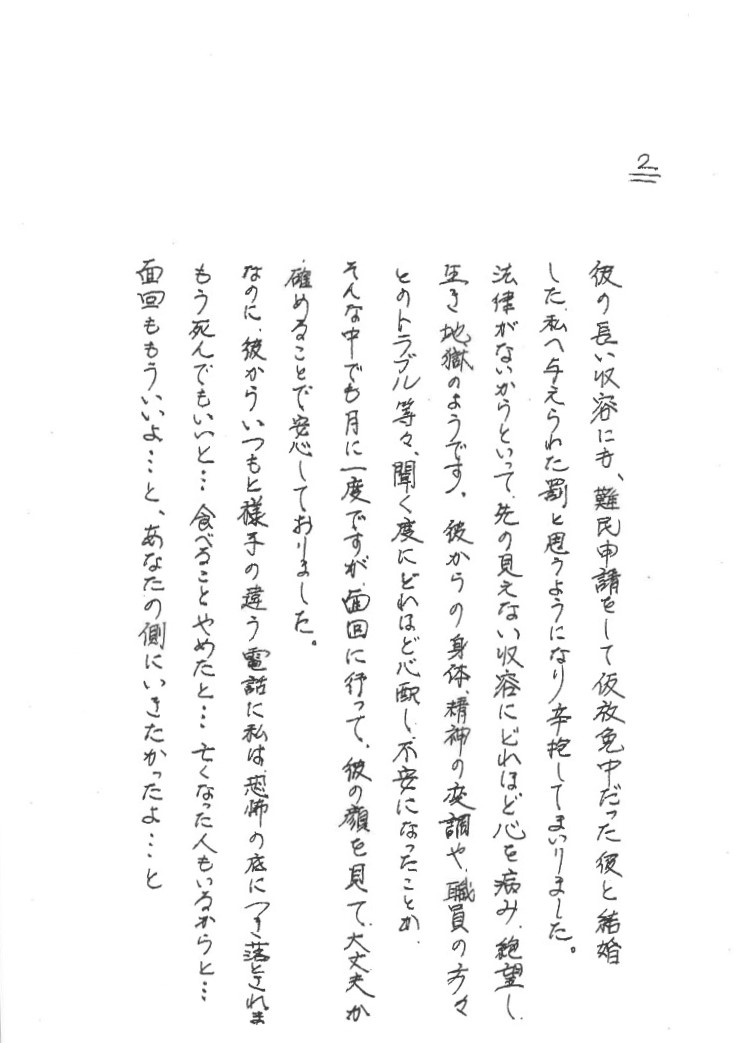 2.
彼の長い収容にも、難民申請をして仮放免中だった彼と結婚
した、私へ与えられた罰と思うようになり辛抱してまいりました。
法律がないからといって、先の見えない収容にどれほど心を病み、絶望し、
生き地獄のようです。彼からの身体、精神の変調や、職員の方々
とのトラブル等々、聞く度にどれほど心配し、不安になったことか、
そんな中でも月に一度ですが、面回に行って、彼の顔を見て、大丈夫か
確めることで安心しておりました。
なのに、彼からいつもと様子の違う電話に私は、恐怖の底につき落とされま
もう死んでもいいと…食べることやめたと…亡くなった人もいるからと…
面回ももういいよ…と、あなたの側にいきたかったよ…と